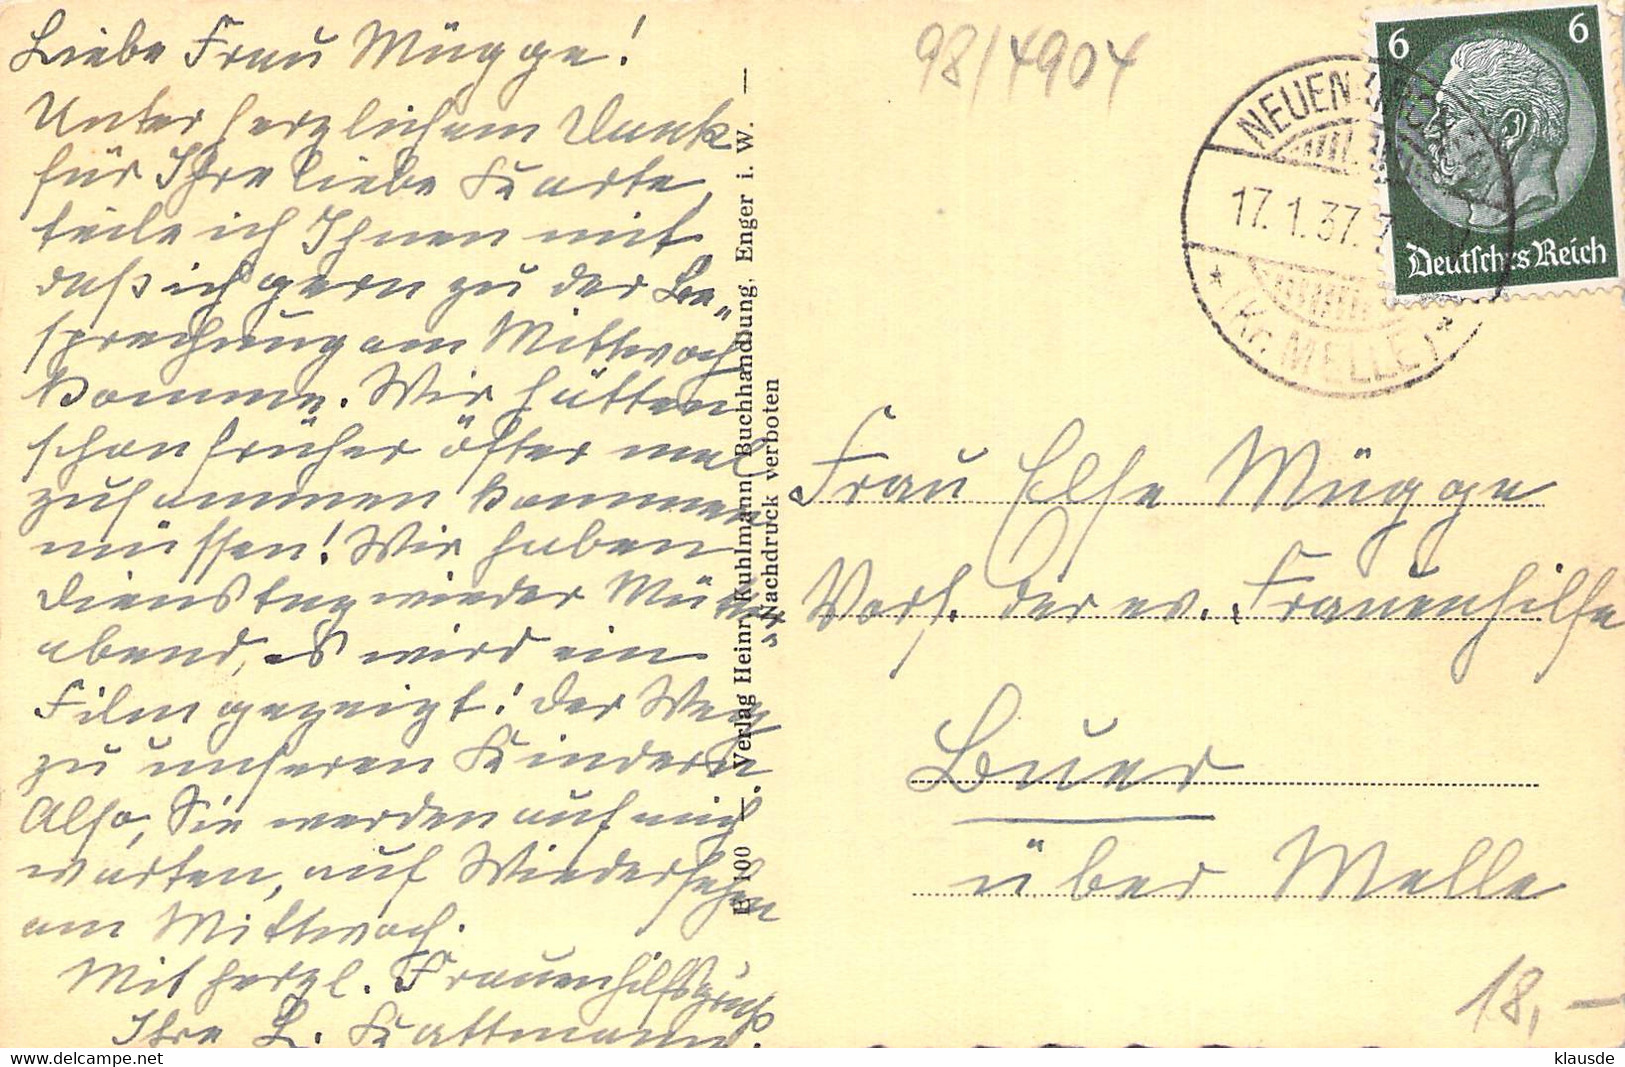 Liebe Frau Mügge!
Unter herzlichem Dank
für Ihre liebe Karte,
teile ich Ihnen mit,
daß ich gern zu der Be„
sprechung am Mittwoch
komme. Wir hätten
schon früher öfter mal
zusammen kommen
müssen! Wir haben
Dienstag wieder
abend, es wird ein
Film gezeigt! Der Weg
zu unseren Kindern
Also, Sie werden auf mich
warten, auf Wiedersehen
am Mittwoch.
Mit herzl. Frauenhilfsgruß
Ihre L. Kattmann.
E 100 — Verlag Heinr. Kuhlmann, Buchhandlung, Enger i. W. —
Nachdruck verboten
98/4904
6 6
Deutsches Reich
NEUEN
17.1.37.
* (Kr. MELLE) *
Frau Else Mügge
Vors. der ev. Frauenhilfe
Buer
über Melle
18,—
klausde